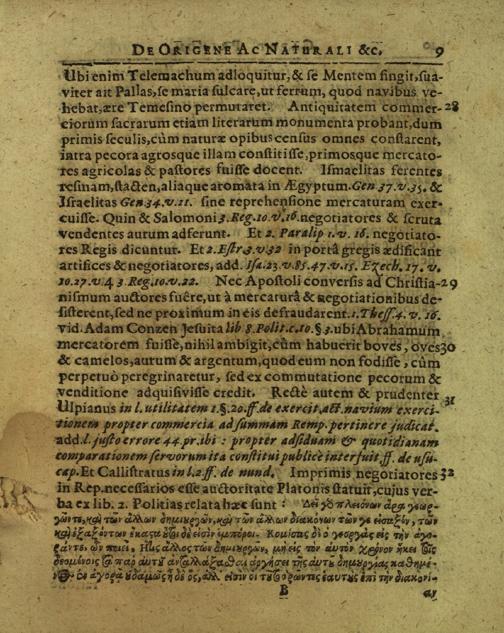 DE ORIGENE AC NATURALI &c. 9
Ubi enim Telemachum adloquitur, & se Mentem fingit, sua-
viter ait Pallas, se maria sulcare, ut ferrum, quod navibus ve-
hebat, ære Temesino permutaret. Antiquitatem commer- 28
ciorum sacrarum etiam literarum monumenta probant, dum
primis seculis, cùm naturæ opibus census omnes constarent,
intra pecora agrosque illam constitisse, primosque mercato-
res agricolas & pastores fuisse docent. Ismaelitas ferentes
resinam, stacten, aliaque aromata in Ægyptum. Gen 37. v. 35. &
Israelitas Gen 34. v. 21. sine reprehensione mercaturam exer-
cuisse. Quin & Salomoni 3. Reg. 10. v. 16. negotiatores & scruta
vendentes aurum adferunt. Et 2. Paralip 1. v. 16. negotiato-
res Regis dicuntur. Et 2. Estr 3. v 32 in portâ gregis ædificant
artifices & negotiatores, add. Isa. 23. v. 85. 47. v. 15. Ezech. 17. v.
10. 27. v 4 3 Reg. 10. v. 22. Nec Apostoli conversis ad Christia- 29
nismum auctores fuêre, ut à mercaturâ & negotiationibus de-
sisterent, sed ne proximum in eis defraudarent. 1. Thess. 4. v. 16.
vid. Adam Conzen Jesuita lib 8. Polit. c. 10. § 3. ubi Abrahamum
mercatorem fuisse, nihil ambigit, cùm habuerit boves, oves 30
& camelos, aurum & argentum, quod eum non fodisse, cùm
perpetuò peregrinaretur, sed ex commutatione pecorum &
venditione adquisivisse credit. Rectè autem & prudenter
Ulpianus in l. utilitatem 1. §. 20. ff. de exercit. act. navium exerci- 31
tionem propter commercia ad summam Remp. pertinere judicat.
add. l. justo errore 44. pr. ibi: propter adsiduam & quotidianam
comparationem servorum ita constitui publicè interfuit, ff. de usu-
cap. Et Callistratus in l. 2 ff. de nund. Imprimis negotiatores 32
in Rep. necessarios esse auctoritate Platonis statuit, cujus ver-
ba ex lib. 2. Politias relata hæc sunt: Δεῖ πλειόνων γεωρ-
γῶντε, καὶ τῶν ἄλλων δημιουργῶν, καὶ τῶν ἄλλων διακόνων τῶν γε εἰσαξόν, τῶν
καὶ ἐξαξόντων ἕκαστα εἰσὶν ἔμποροι. Κομίσας ὁ γεωργὸς εἰς τὴν ἀγο-
ρὰν τι, ὧν ποιεῖ, ἤ τις ἄλλος τῶν δημιουργῶν, μὴ εἰς τὸν αὐτὸν χρόνον ἥκει τοῖς
δεομένοις τὰ παρ' αὐτοῦ ἀνταλλάξασθαι ἀργήσει τῆς αὐτοῦ δημιουργίας καθήμε-
ἀγορᾷ οὐδαμῶς ἦ δ' ὅς, ἀλλ' εἰσὶν οἱ τοῦτο ὁρῶντες ἑαυτοὺς ἐπὶ τὴν διακονί-
B αν